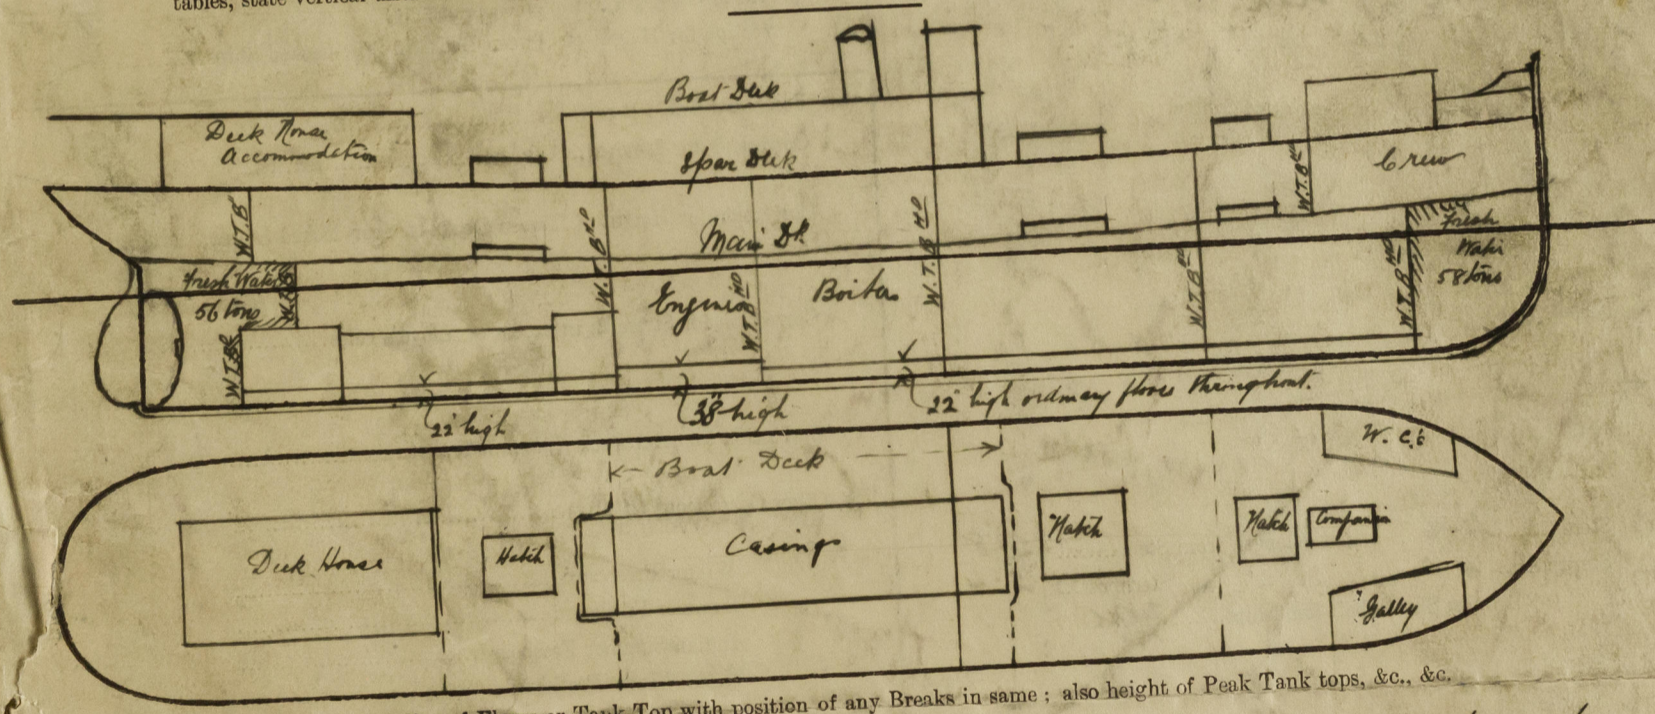 tables, state vertical
Boat Deck
Deck House
Accommodation
Spar Deck
Crew
W.T.B
W.T.BHD
W.T.BHD
W.T.BHD
Main Dk
Fresh Water
56 tons
Engines
W.T.BHD
Boilers
W.T.BHD
W.T.BHD
Fresh
Water
58 tons
22" high
38" high
22" high ordinary floors throughout.
Boat Deck
W.C.s
Deck House
Hatch
Casings
Hatch
Hatch
Companion
Galley
Tank Top with position of any Breaks in same ; also height of Peak Tank tops, &c., &c.